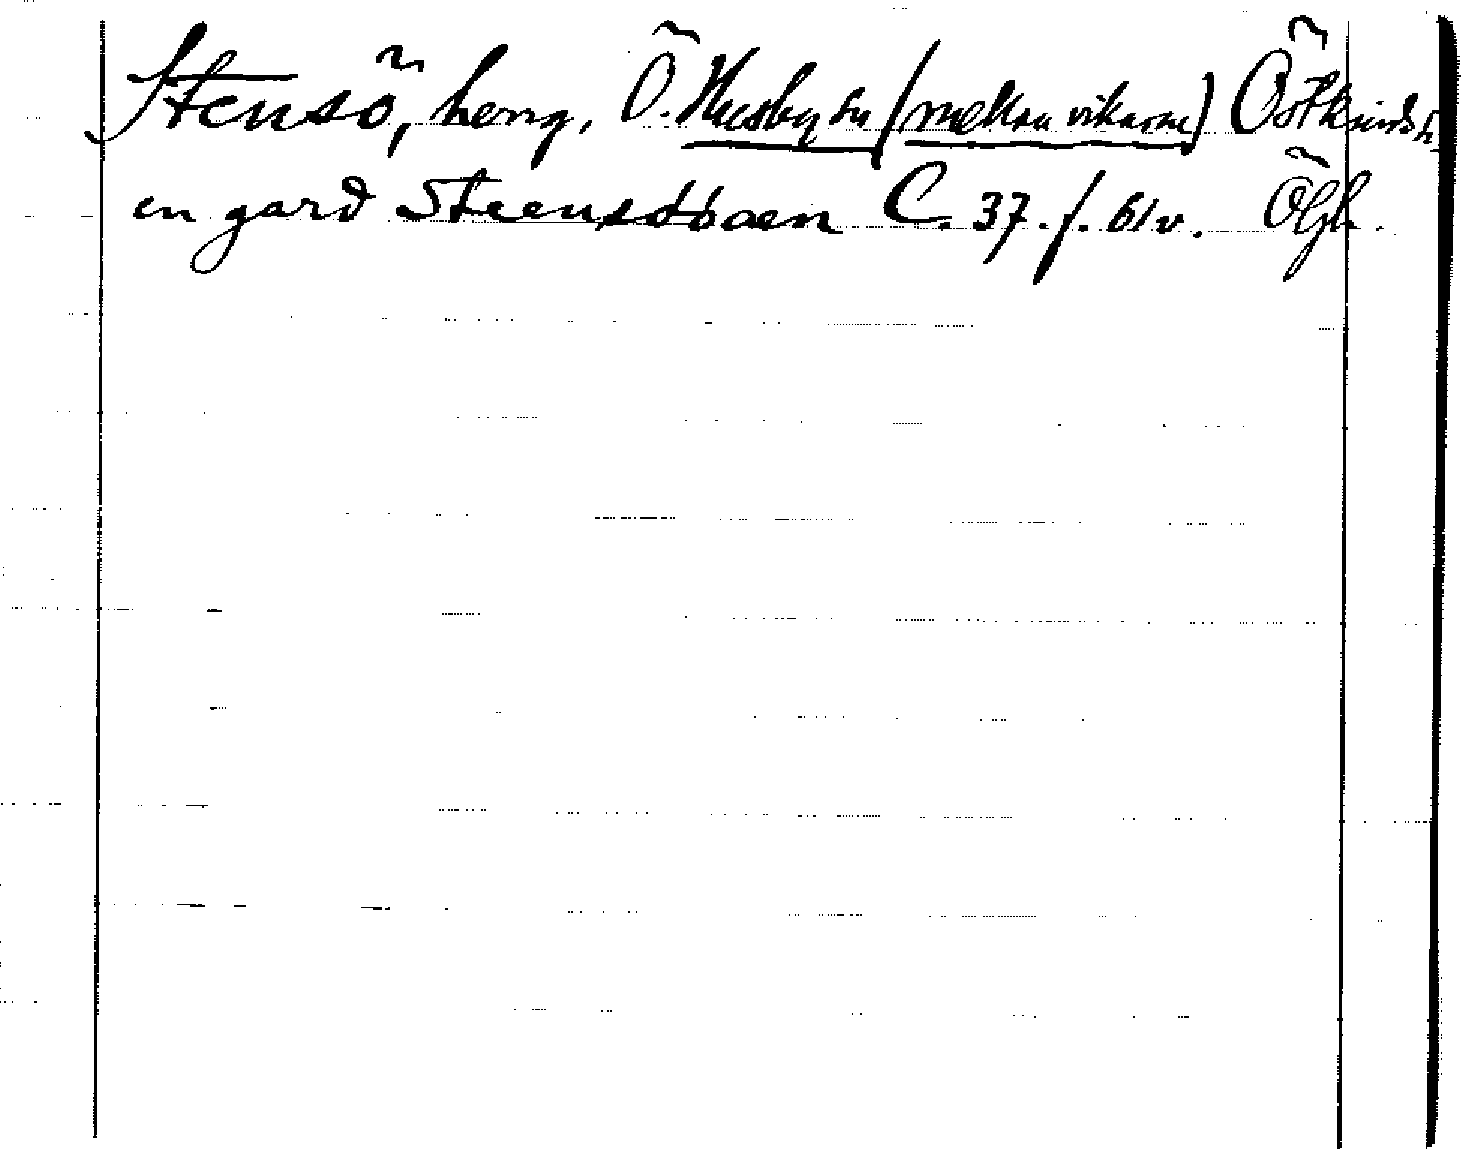 Stensö, herrg, Ö. Husby sn (mellan vikarne) Östkinds h.
en gard Steensööaen C. 37. f. 61v. Ögh.